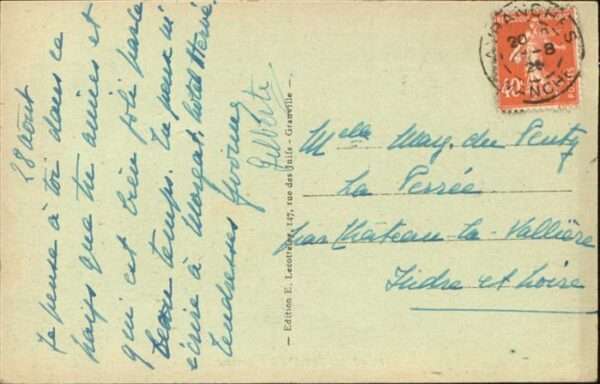 28 août
Je pense à toi dans ce
pays que tu aimes et
qui est bien joli par le
beau temps. Tu peux m'
écrire à Morgat hôtel Hervé.
Tendresses Yvonne
Gilberte
— Edition E. Lecottelier, 147, rue des Juifs - Granville —
AVRANCHES
20
-8
26
MANCHE
10
Melle May. du
La Perrée
par Château-la-Vallière
Indre et Loire